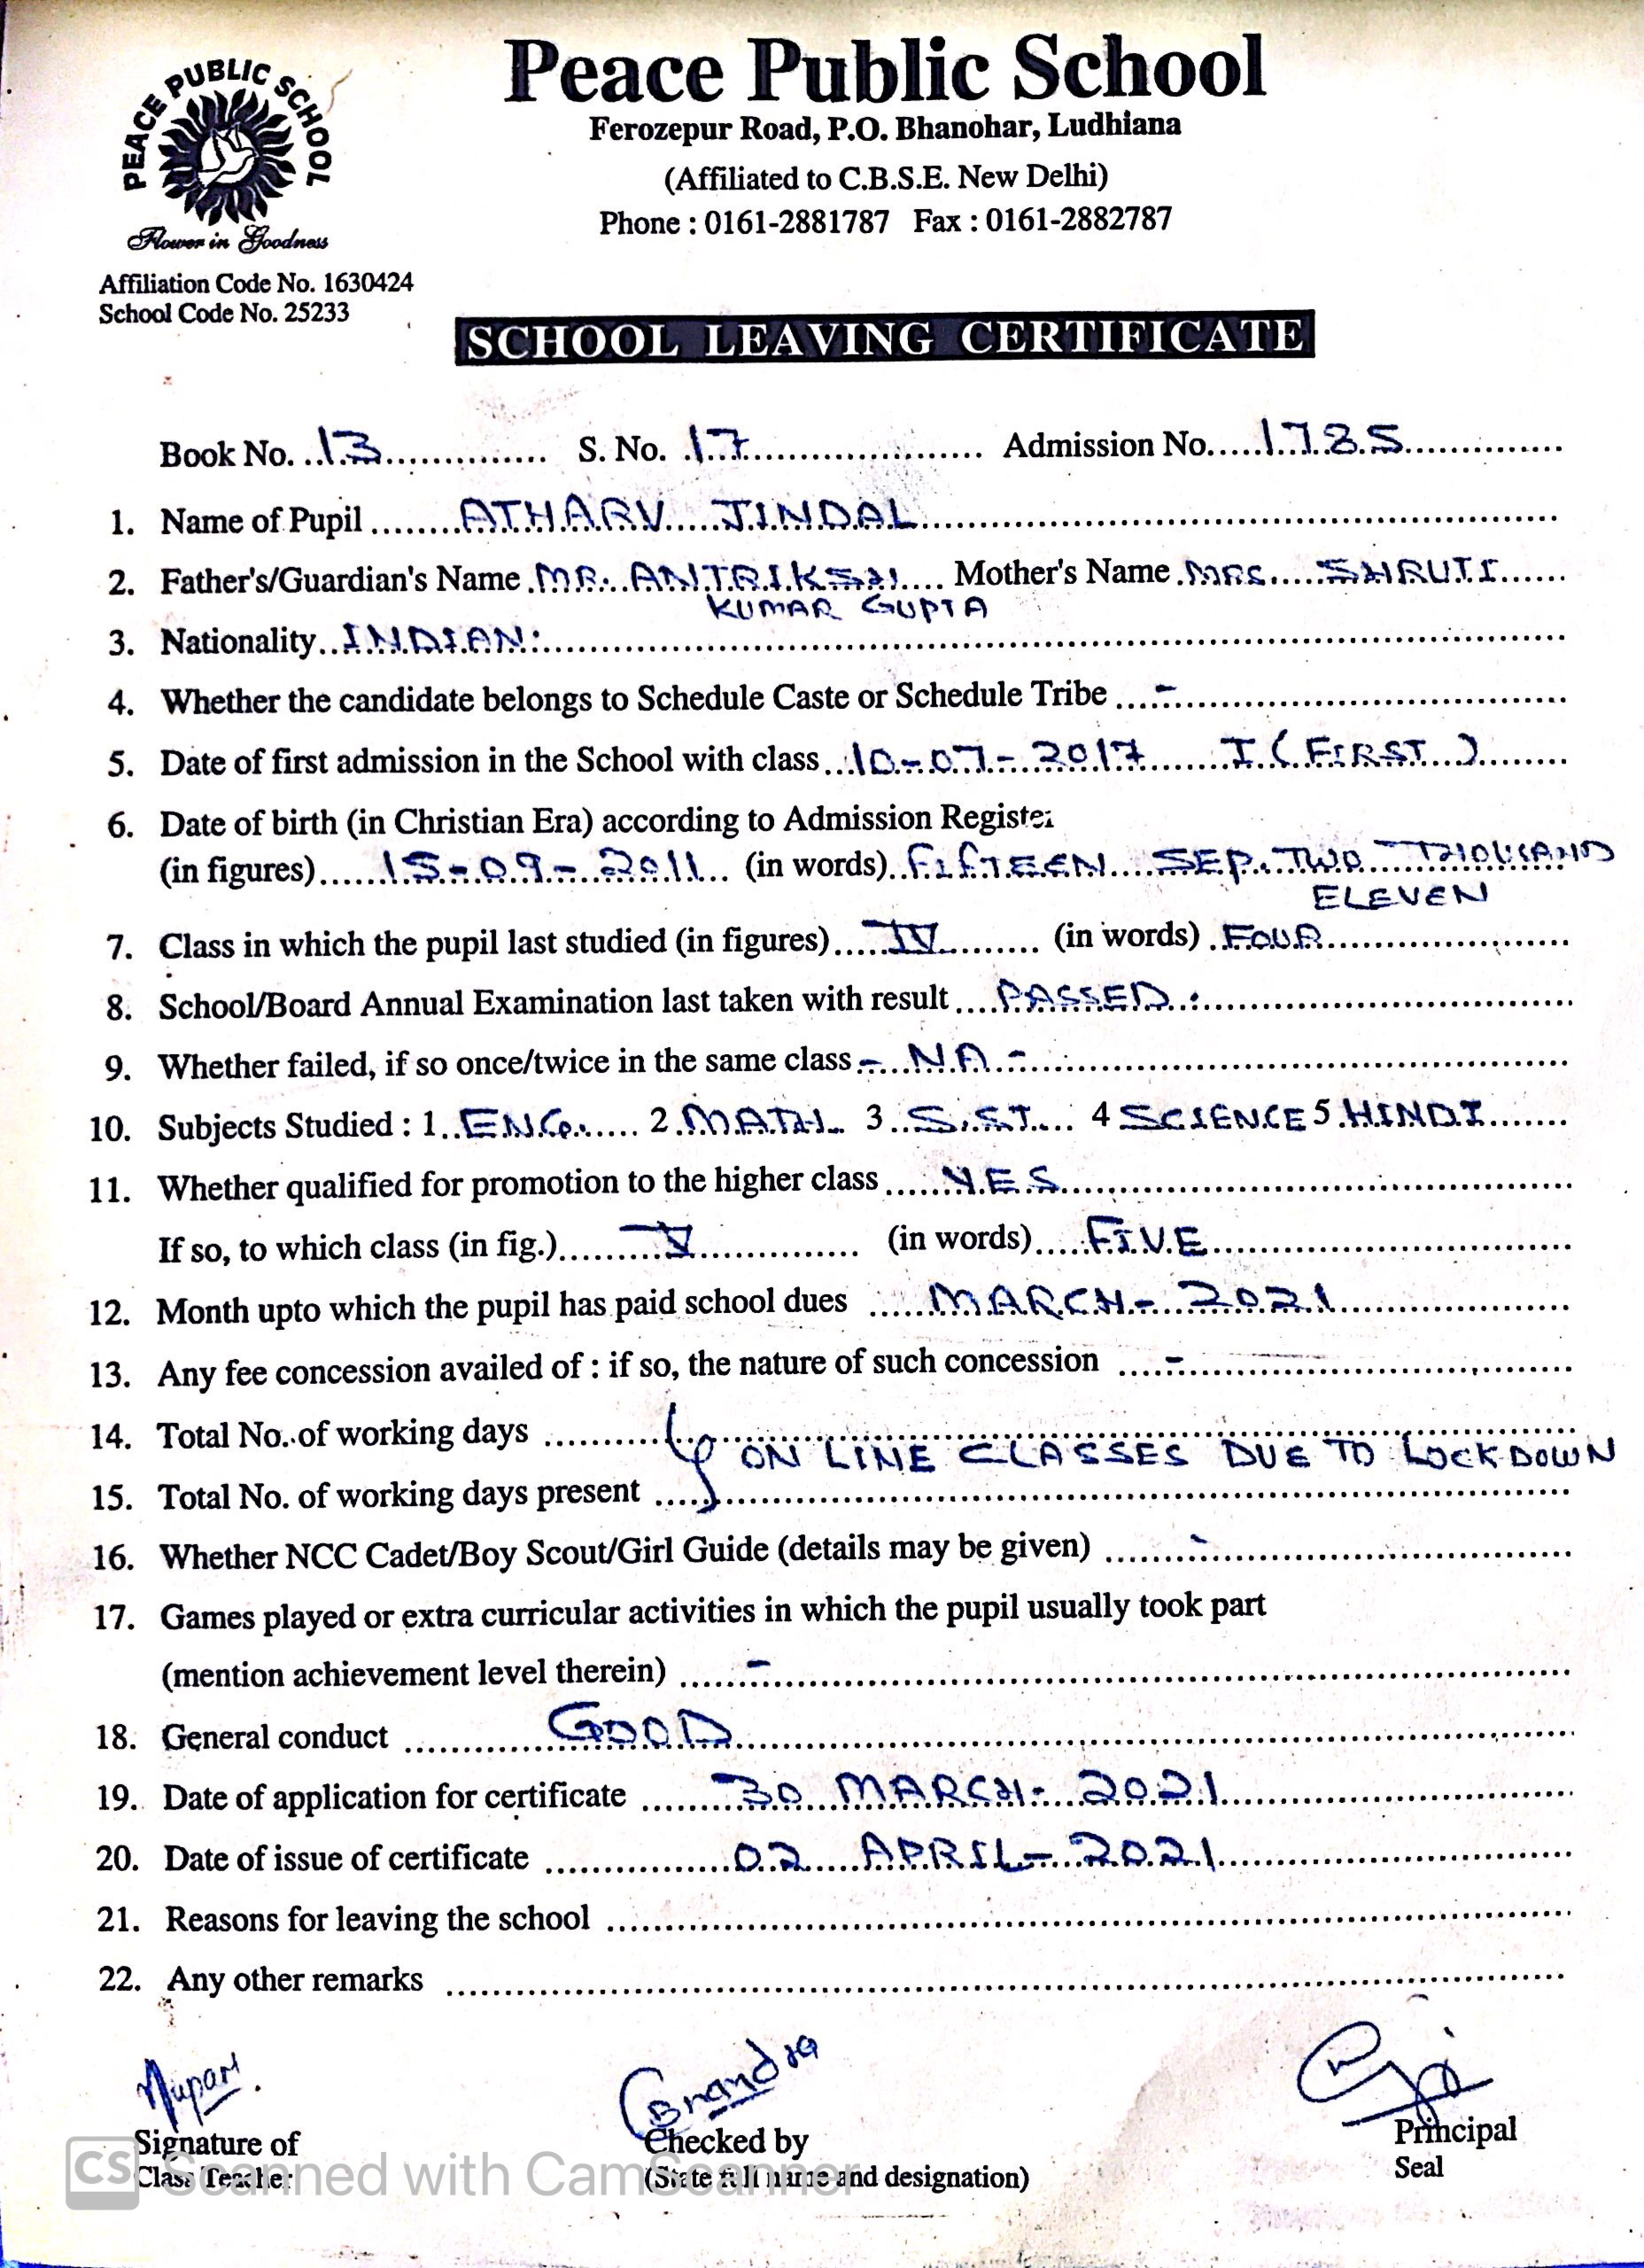 PEACE PUBLIC SCHOOL
Flower in Goodness
Affiliation Code No. 1630424
School Code No. 25233
Peace Public School
Ferozepur Road, P.O. Bhanohar, Ludhiana
(Affiliated to C.B.S.E. New Delhi)
Phone : 0161-2881787 Fax : 0161-2882787
SCHOOL LEAVING CERTIFICATE
Book No. 13 S. No. 17 Admission No. 1785
1. Name of Pupil ATHARV JINDAL
2. Father's/Guardian's Name MR. ANTRIKSH Mother's Name MRS. SHRUTI
KUMAR GUPTA
3. Nationality INDIAN
4. Whether the candidate belongs to Schedule Caste or Schedule Tribe -
5. Date of first admission in the School with class 10-07-2017 I (FIRST)
6. Date of birth (in Christian Era) according to Admission Register
(in figures) 15-09-2011 (in words) FIFTEEN SEP. TWO THOUSAND
ELEVEN
7. Class in which the pupil last studied (in figures) IV (in words) FOUR
8. School/Board Annual Examination last taken with result PASSED
9. Whether failed, if so once/twice in the same class - NA -
10. Subjects Studied : 1. ENG. 2 MATH 3 S.ST 4 SCIENCE 5 HINDI
11. Whether qualified for promotion to the higher class YES
If so, to which class (in fig.) V (in words) FIVE
12. Month upto which the pupil has paid school dues MARCH - 2021
13. Any fee concession availed of : if so, the nature of such concession -
14. Total No. of working days
ON LINE CLASSES DUE TO LOCKDOWN
15. Total No. of working days present
16. Whether NCC Cadet/Boy Scout/Girl Guide (details may be given) -
17. Games played or extra curricular activities in which the pupil usually took part
(mention achievement level therein) -
18. General conduct GOOD
19. Date of application for certificate 30 MARCH - 2021
20. Date of issue of certificate 02 APRIL - 2021
21. Reasons for leaving the school
22. Any other remarks
Signature of
Class Teacher
Checked by
(State full name and designation)
Principal
Seal
CS Scanned with CamScanner